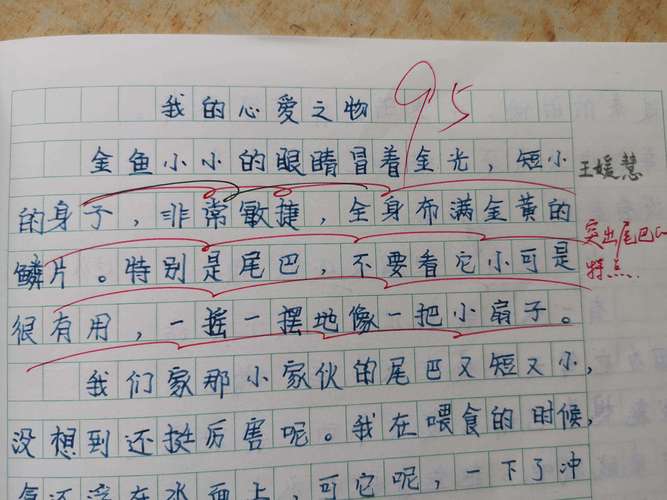 95
我的心爱之物
金鱼小小的眼睛冒着金光，短小
王媛慧
的身子，非常敏捷，全身布满金黄的
突出尾巴
特点.
鳞片。特别是尾巴，不要看它小可是
很有用，一摇一摆地像一把小扇子。
我们家那小家伙的尾巴又短又小，
没想到还挺厉害呢。我在喂食的时候，
还浮在水面上，可它呢，一下了冲